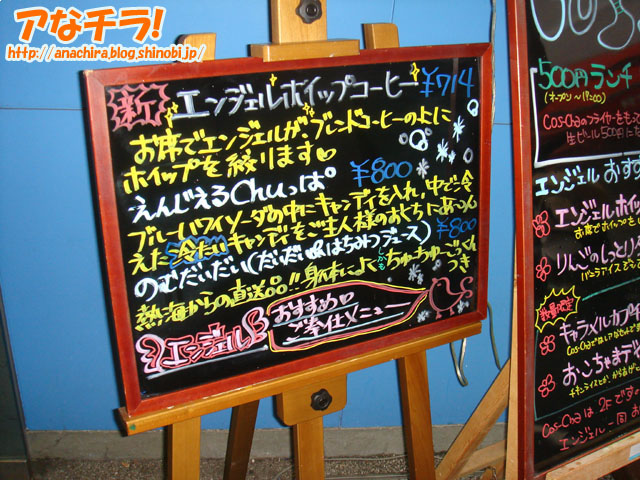 アなチラ!
http://anachira.blog.shinobi.jp/
新 エンジェルホイップコーヒー ¥714
お席でエンジェルが、ブレンドコーヒーの上に
ホイップを絞ります♡
えんじぇるChuっぱ ¥800
ブルーハワイソーダの中にキャンディを入れ、中で冷
えた冷たいキャンディをご主人様のおくちにあ〜ん
のむだいだい(だいだい&はちみつジュース) ¥800
熱海からの直送品!!身体によくしかもちゅーちゅーごっくん
つき
エンジェル おすすめ♡
ご奉仕メニュー
500円ランチ
(オープン〜17:00)
Cos-Chaのフライヤーをもって
生ビール500円に
エンジェルおすす
エンジェルホイッ
お席でホイップを
りんごのしっとり
バニラアイスと
数量限定
キャラメルカプチ
Cos-Chaで
おこちゃまデ
チキンライスとか、からあげ
Cos-Chaは2Fです
エンジェル一同お